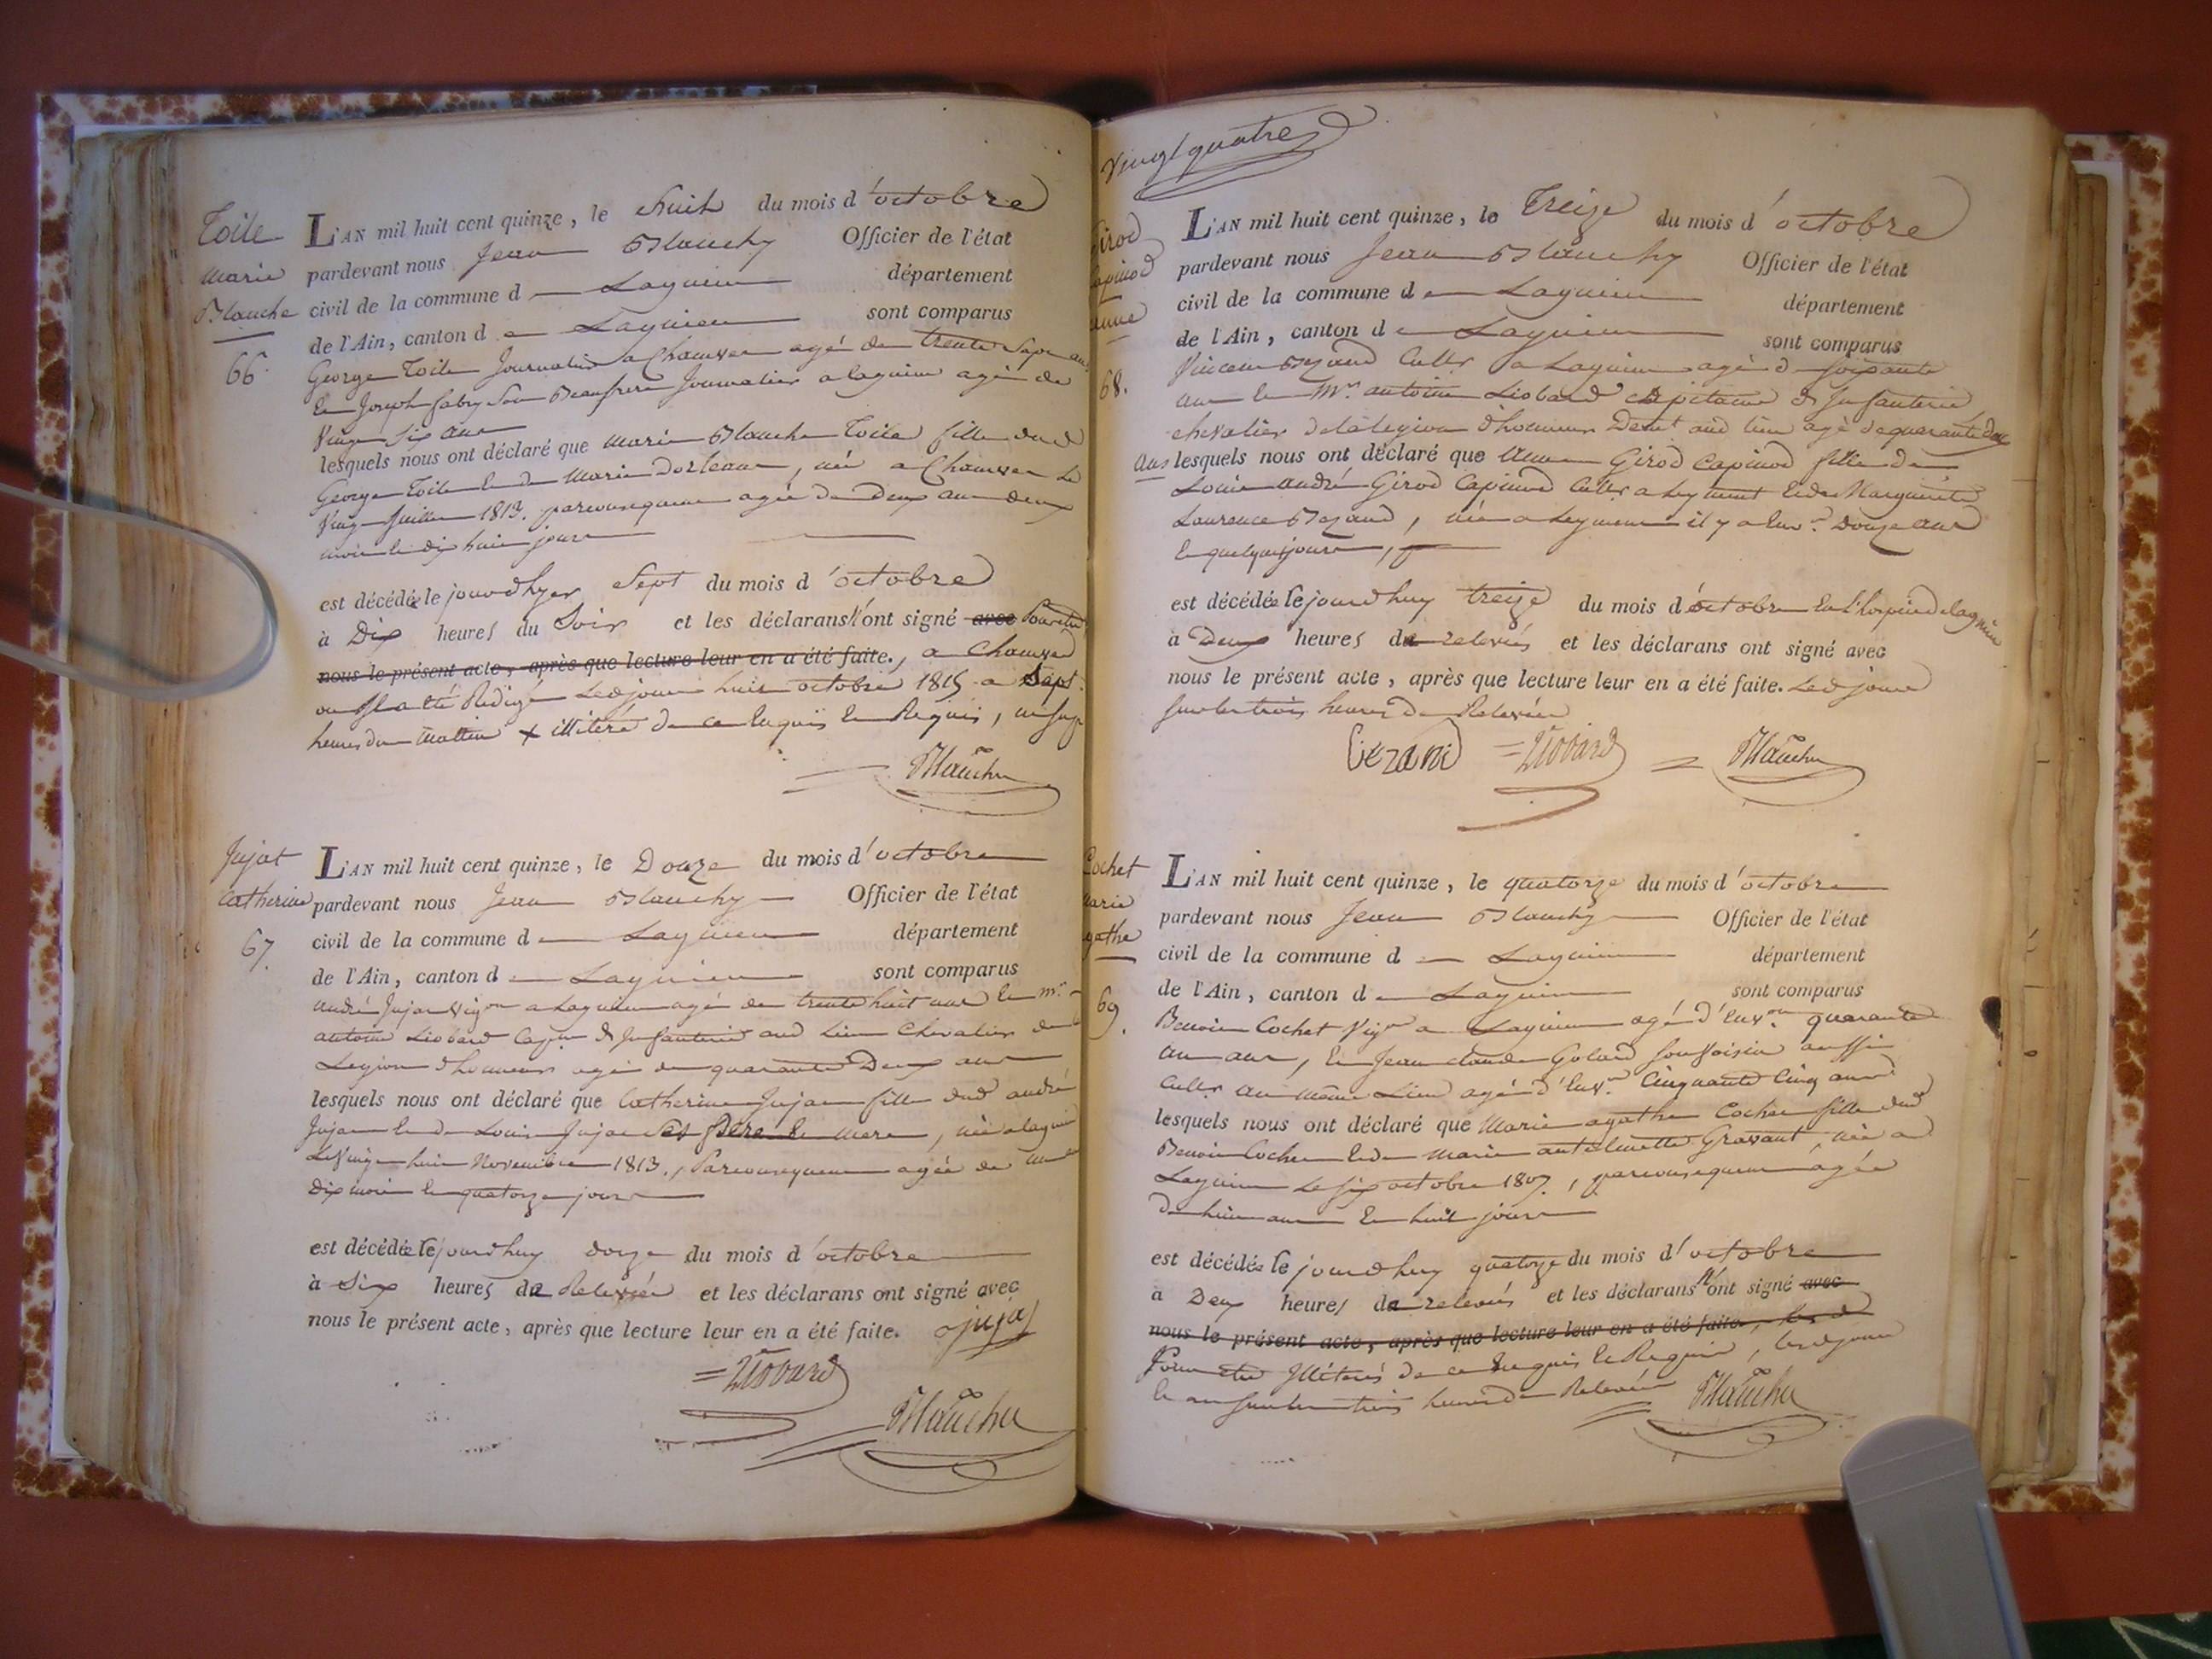 Toile
Marie
Blanche
66
L'AN mil huit cent quinze, le huit du mois d'octobre
pardevant nous Jean Blanchy Officier de l'état
civil de la commune de Lagnieu département
de l'Ain, canton de Lagnieu sont comparus
George Toile Journalier a Chanves agé de trente Sept ans
et Joseph fabry Son Beaufrere Journalier a lagnieu agé de
Vingt Six ans
lesquels nous ont déclaré que Marie Blanche Toile fille dud
George Toile et de Marie Dorleans, née a Chanves Le
Vingt Juillet 1813. parconsequent agée de Deux ans deux
mois et dix huit jours
est décédée le jourdhyer Sept du mois d'octobre
à Dix heures du Soir et les déclarans n'ont signé avec Pour etre
nous le présent acte, après que lecture leur en a été faite., a Chanves
ou Il a été Rédigé Led jour huit octobre 1815 a Sept
heures du Mattin + illitéré de ce Enquis et Requis,
Blanchy
Jujat
Catherine
67
L'AN mil huit cent quinze, le Douze du mois d'octobre
pardevant nous Jean Blanchy Officier de l'état
civil de la commune de Lagnieu département
de l'Ain, canton de Lagnieu sont comparus
André Jujat Vigon a Lagnieu agé de trente huit ans et mr
antoine Liobard Capne d'Infanterie aud Lieu Chevalier de la
Legion d'honneur agé de quarante Deux ans
lesquels nous ont déclaré que Catherine Jujat fille dud andré
Jujat et de Louise Jujat Ses Père et Mere, née a lagnieu
Le Vingt huit Novembre 1813., Parconsequent agée de un an
Dix mois et quatorze jours
est décédée le jourdhuy douze du mois d'octobre
à Six heures de Relevée et les déclarans ont signé avec
nous le présent acte, après que lecture leur en a été faite. jujat
Liobard
Blanchy
Vingt quatre
Girod
Capinod
anne
68.
L'AN mil huit cent quinze, le Treize du mois d'octobre
pardevant nous Jean Blanchy Officier de l'état
civil de la commune de Lagnieu département
de l'Ain, canton de Lagnieu sont comparus
Vincent Bezand Cultr a Lagnieu agé de soixante
ans et Mr. antoine Liobard Capitaine d'Infanterie
chevalier de la legion d'honneur Demt aud lieu agé de quarante deux
ans lesquels nous ont déclaré que Anne Girod Capinod fille de
Louis André Girod Capinod Cultr a Leyment et de Marguerite
Laurence Bezand, née a Leyment il y a Env. Douze ans
et quelques jours,
est décédée le jourdhuy treize du mois d'octobre En L'hospice de lagnieu
à Deux heures de relevées et les déclarans ont signé avec
nous le présent acte, après que lecture leur en a été faite. Led jour
Sur les trois heures de Relevée
Bezand Liobard Blanchy
Cochet
Marie
Agathe
69.
L'AN mil huit cent quinze, le quatorze du mois d'octobre
pardevant nous Jean Blanchy Officier de l'état
civil de la commune de Lagnieu département
de l'Ain, canton de Lagnieu sont comparus
Benoit Cochet Vign a Lagnieu agé d'Environ quarante
un ans, et Jean claude Golard Son Voisin aussi
Cultr au même Lieu agé d'Envn Cinquante Cinq ans
lesquels nous ont déclaré que Marie agathe Cochet fille dud
Benoit Cochet et de Marie antelmette Gravant, née a
Lagnieu Le six octobre 1807, parconsequent âgée
de huit ans et huit jours
est décédée le jourdhuy quatorze du mois d'octobre
à Deux heures de relevées et les déclarans n'ont signé avec
nous le présent acte, après que lecture leur en a été faite,
Pour etre Illitérés de ce Enquis et Requis, led jour
et an sur les trois heures de Relevée Blanchy